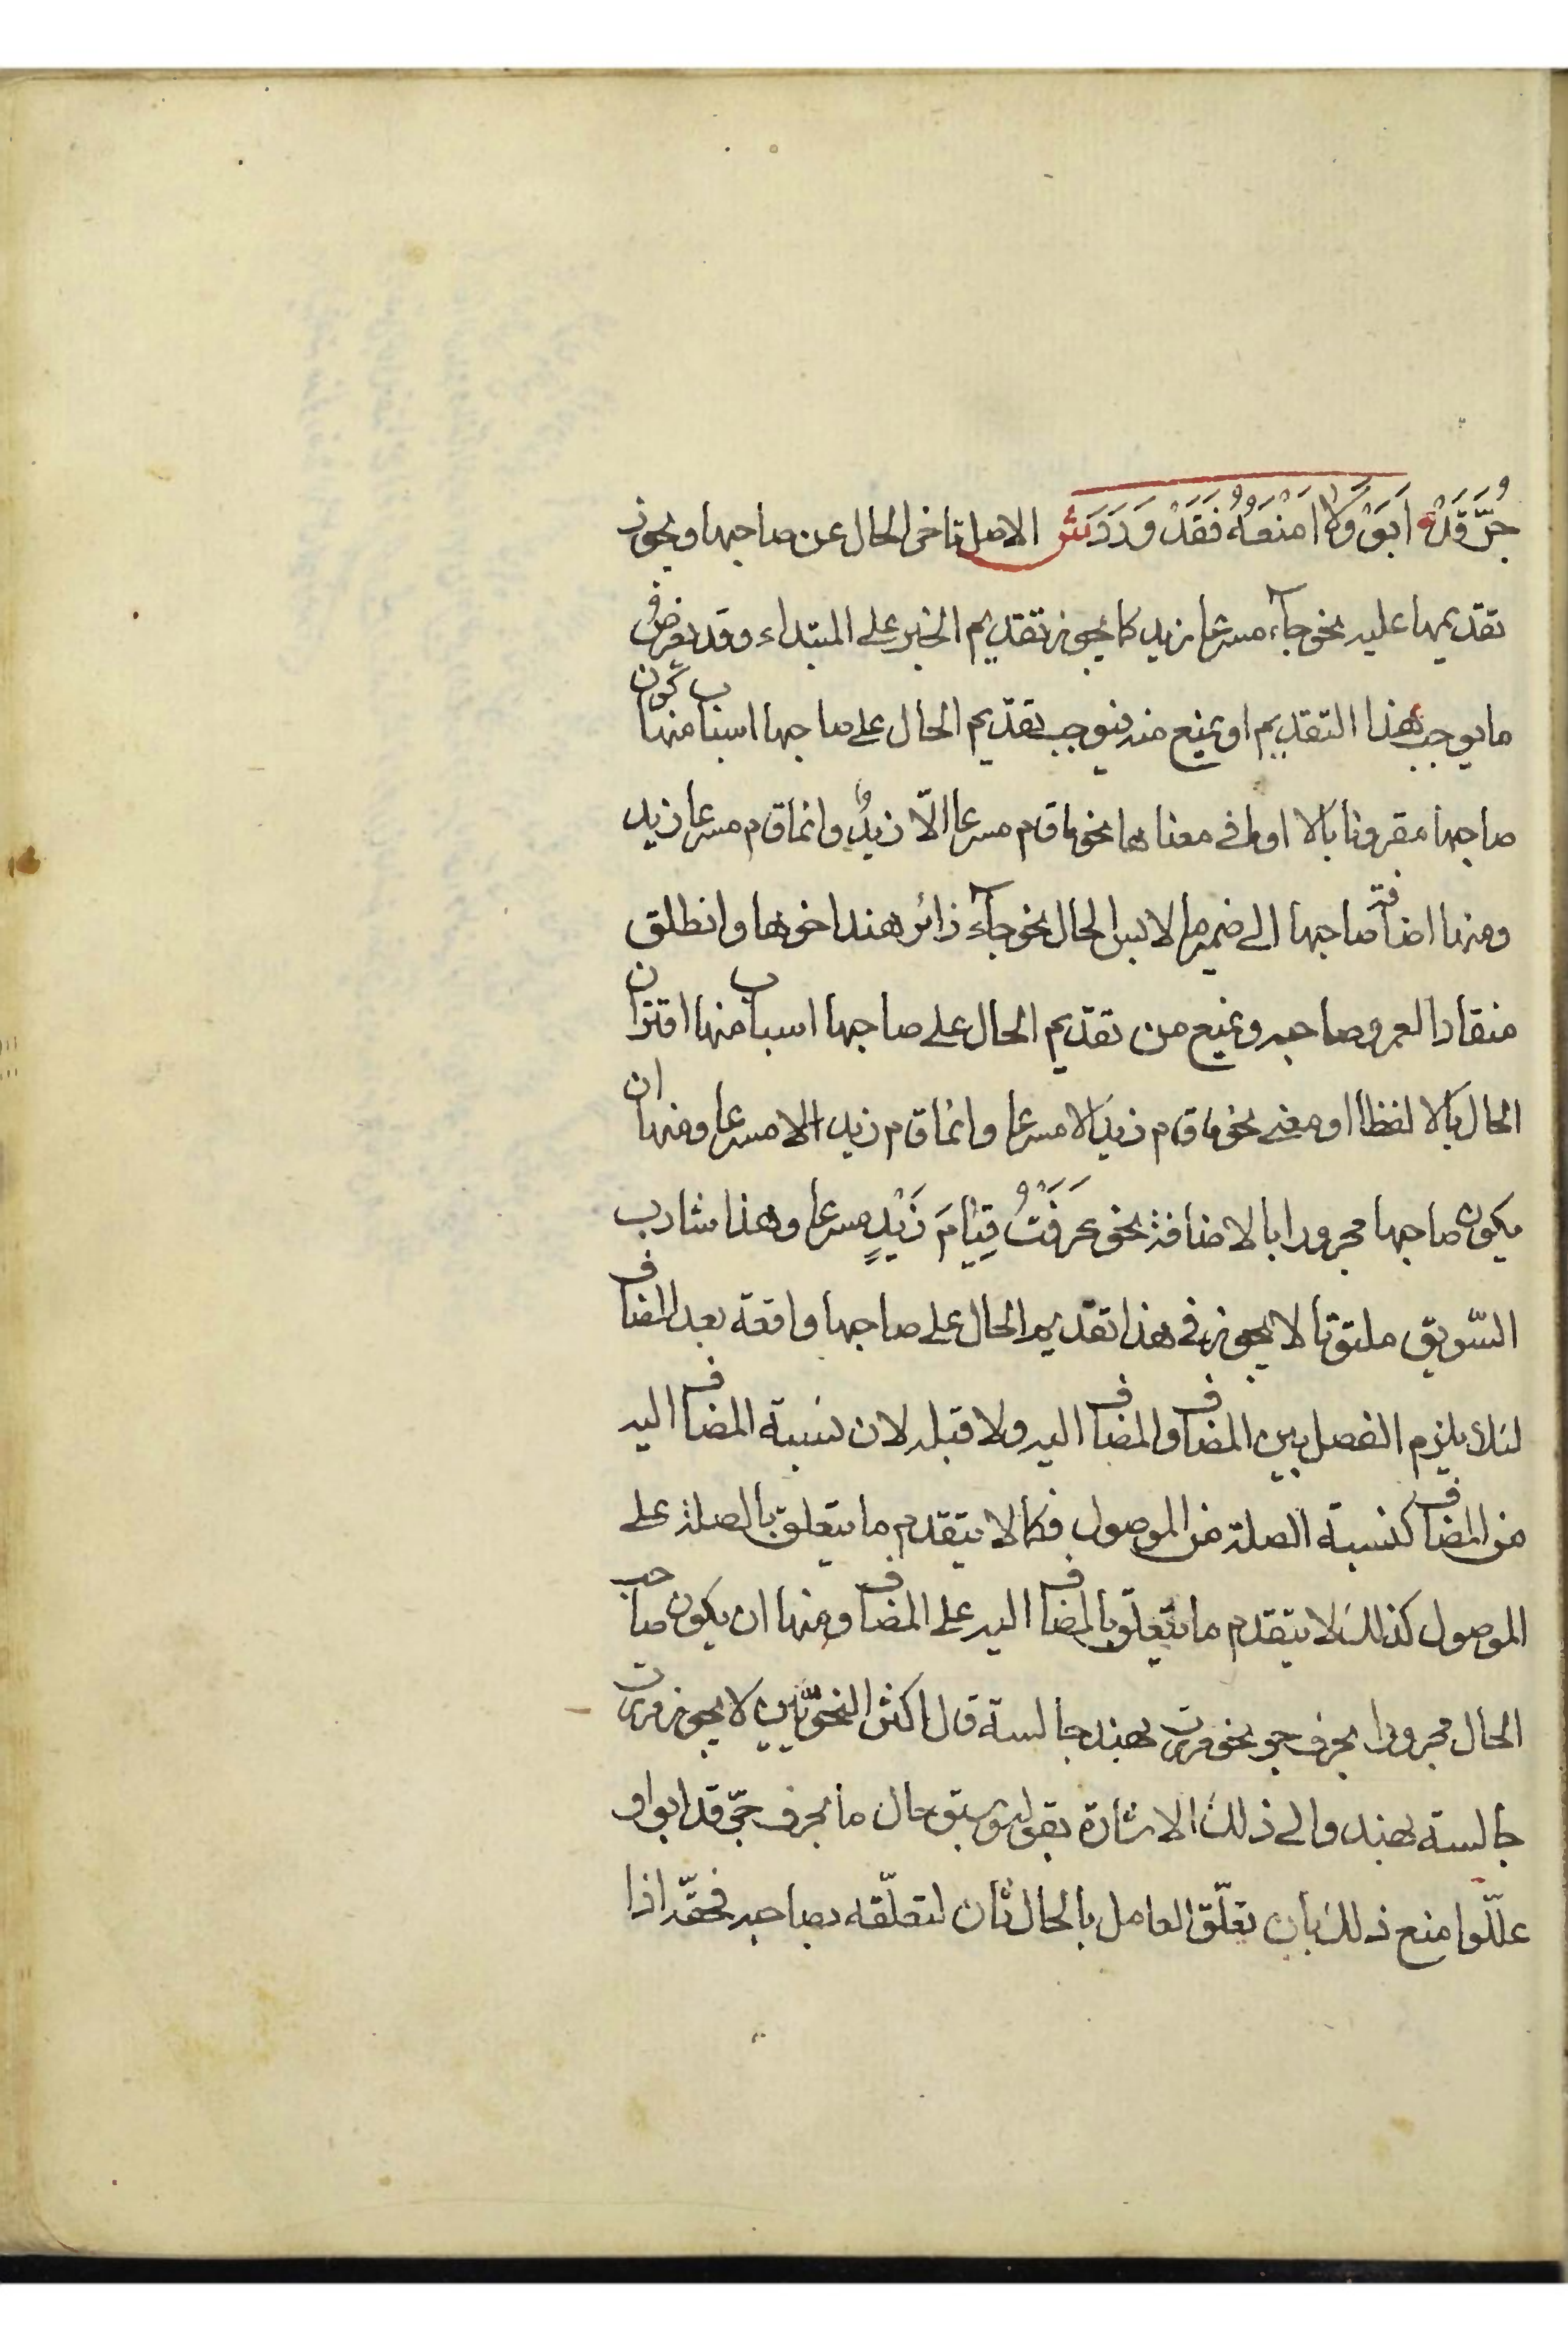 جُرَّ قَدْ اَبَوْ وَلَا اَمْنَعُهُ فَقَدْ وَرَدَ ش الاصل تاخر الحال عن صاحبها ويجوز
تقديمها عليه نحو جآء مسرعا زيد كما يجوز تقديم الخبر على المبتداء وقد يعرض
ما يوجب هذا التقديم او يمنع منه فيوجب تقديم الحال على صاحبها اسباب منها كون
صاحبها مقرونا بالا او ما في معناها نحو ما قام مسرعا الّا زيدٌ وانما قام مسرعا زيد
ومنها اضافة صاحبها الى ضمير ما لابس الحال نحو جآء زائر هند اخوها وانطلق
منقادا لعمرو صاحبه ويمنع من تقديم الحال على صاحبها اسباب منها اقتران
الحال بالا لفظا او معنى نحو ما قام زيد الا مسرعا وانما قام زيد الا مسرعا ومنها ان
يكون صاحبها مجرورا بالاضافة نحو عَرَفْتُ قِيَامَ زَيْدٍ مسرعا وهذا شارب
السّويق ملتوتا لا يجوز في هذا تقديم الحال على صاحبها واقعة بعد المضاف
لئلا يلزم الفصل بين المضاف والمضاف اليه ولا قبله لان نسبة المضاف اليه
من المضاف كنسبة الصلة من الموصول فكما لا يتقدم ما يتعلق بالصلة على
الموصول كذلك لا يتقدم ما يتعلّق بالمضاف اليه على المضاف ومنها ان يكون صاحب
الحال مجرورا بحرف جر نحو مررت بهند جالسة قال اكثر النحويّين لا يجوز مررت
جالسة بهند والى ذلك الاشارة بقوله وسبق حال ما بحرف جرّ قد ابوا و
علّلوا منع ذلك بان تعلّق العامل بالحال ثان لتعلّقه بصاحبه فحقّه اذا